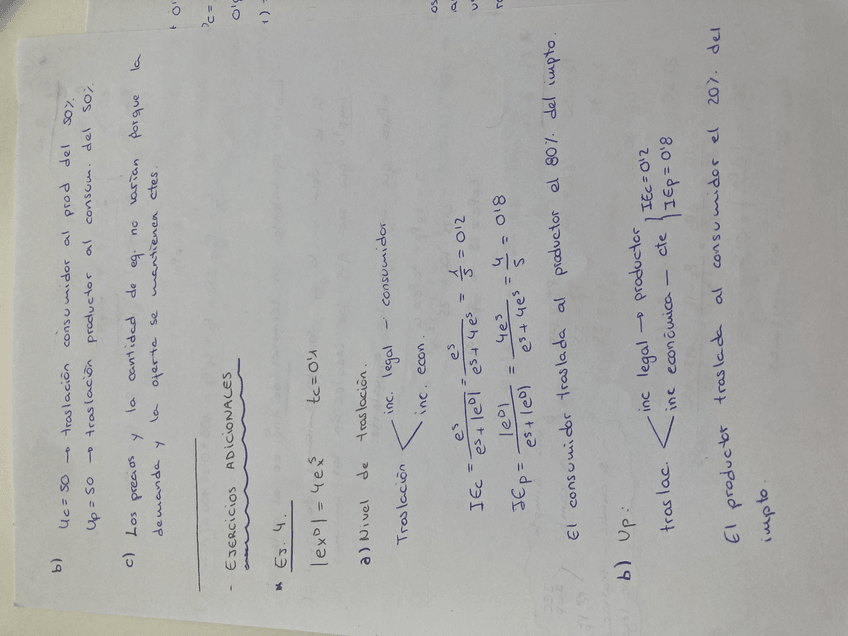 b) Uc = 50 → traslación consumidor al prod del 50%
Up = 50 → traslación productor al consum. del 50%
c) Los precios y la cantidad de eq. no varían porque la
demanda y la oferta se mantienen ctes.
- EJERCICIOS ADICIONALES
* Ej. 4.
|exᴰ| = 4exˢ tc = 0'1
a) Nivel de traslación.
Traslación < inc. legal - consumidor
inc. econ.
IEc = eˢ / (eˢ + |eᴰ|) = eˢ / (eˢ + 4eˢ) = 1/5 = 0'2
IEp = |eᴰ| / (eˢ + |eᴰ|) = 4eˢ / (eˢ + 4eˢ) = 4/5 = 0'8
El consumidor traslada al productor el 80% del impto.
b) Up:
traslac. < inc legal → productor
inc económica - cte } IEc = 0'2
IEp = 0'8
El productor traslada al consumidor el 20% del
impto.